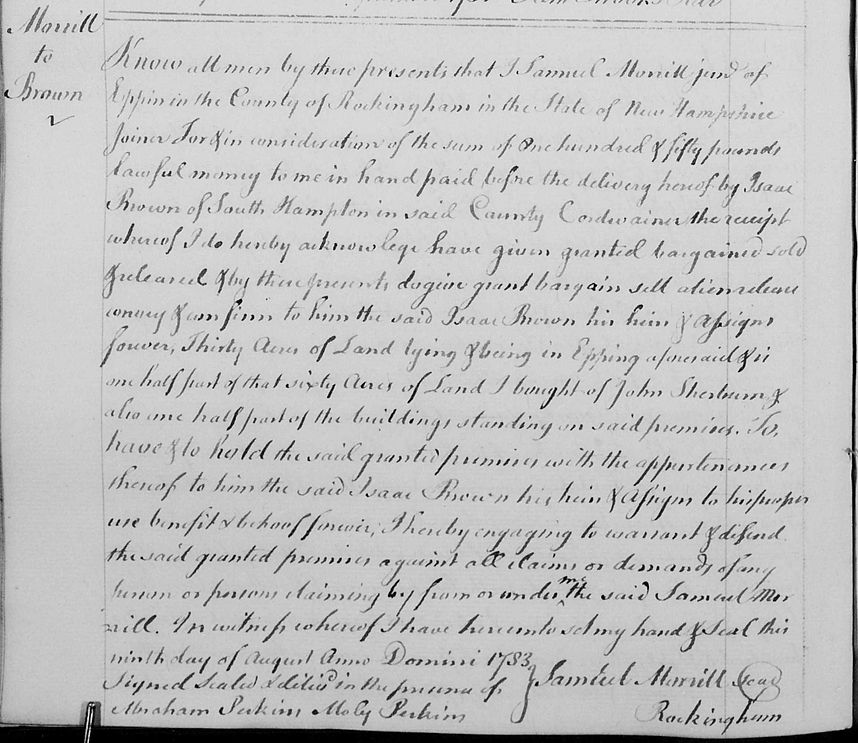 Morrill
to
Brown
Know all men by these presents that I Samuel Morrill jun.r of
Eppin in the County of Rockingham in the State of New Hampshire
Joiner For & in consideration of the sum of One hundred & fifty pounds
lawful money to me in hand paid before the delivery hereof by Isaac
Brown of South Hampton in said County Cordwainer the receipt
whereof I do hereby acknowlege have given granted bargained sold
& released & by these presents do give grant bargain sell alien release
convey & confirm to him the said Isaac Brown his heirs & Assigns
forever, Thirty Acres of Land lying & being in Epping aforesaid & is
one half part of that sixty Acres of Land I bought of John Sherburn &
also one half part of the buildings standing on said premises. To,
have & to hold the said granted premises with the appertenances
thereof to him the said Isaac Brown his heirs & Assigns to his proper
use benefit & behoof forever; I hereby engaging to warrant & defend
the said granted premises against all claims or demands of any
person or persons claiming by from or under me the said Samuel Mor
rill. In witness whereof I have hereunto set my hand & Seal this
ninth day of August Anno Domini 1783
Signed Sealed & deliv.d in the presence of } Samuel Morrill Seal
Abraham Perkins Moly Perkins Rockingham